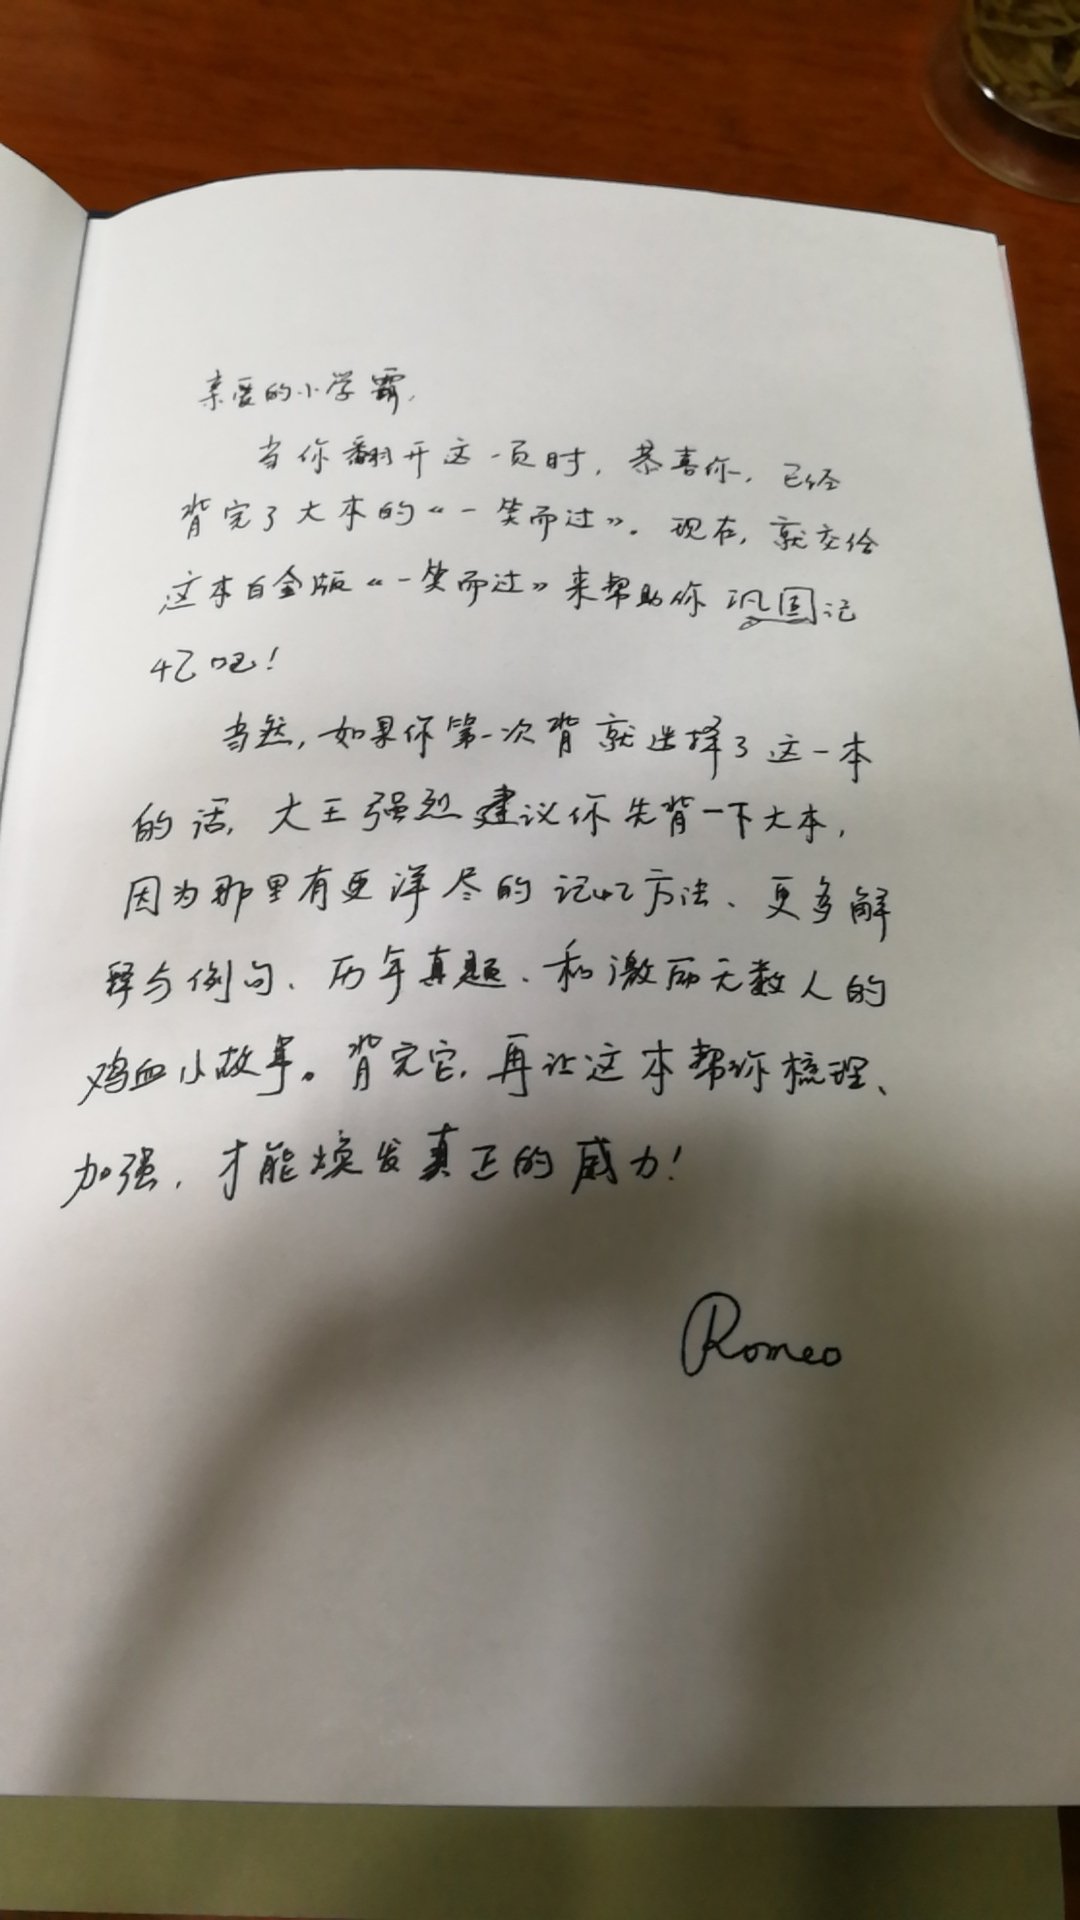 亲爱的小学霸,
当你翻开这一页时,恭喜你,已经
背完了大本的《一笑而过》。现在,就交给
这本白金版《一笑而过》来帮助你巩固记
忆吧!
当然,如果你第一次背就选择了这一本
的话,大王强烈建议你先背一下大本,
因为那里有更详尽的记忆方法、更多解
释与例句、历年真题、和激励无数人的
鸡血小故事。背完它,再让这本帮你梳理、
加强,才能焕发真正的威力!
Romeo